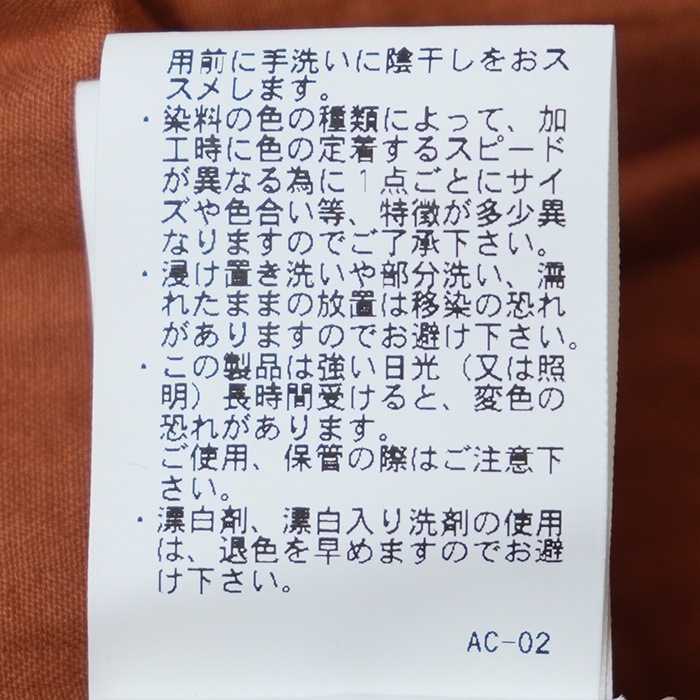 用前に手洗いに陰干しをおス
スメします。
・染料の色の種類によって、加
工時に色の定着するスピード
が異なる為に１点ごとにサイ
ズや色合い等、特徴が多少異
なりますのでご了承下さい。
・浸け置き洗いや部分洗い、濡
れたままの放置は移染の恐れ
がありますのでお避け下さい。
・この製品は強い日光（又は照
明）長時間受けると、変色の
恐れがあります。
ご使用、保管の際はご注意下
さい。
・漂白剤、漂白入り洗剤の使用
は、退色を早めますのでお避
け下さい。
AC-02